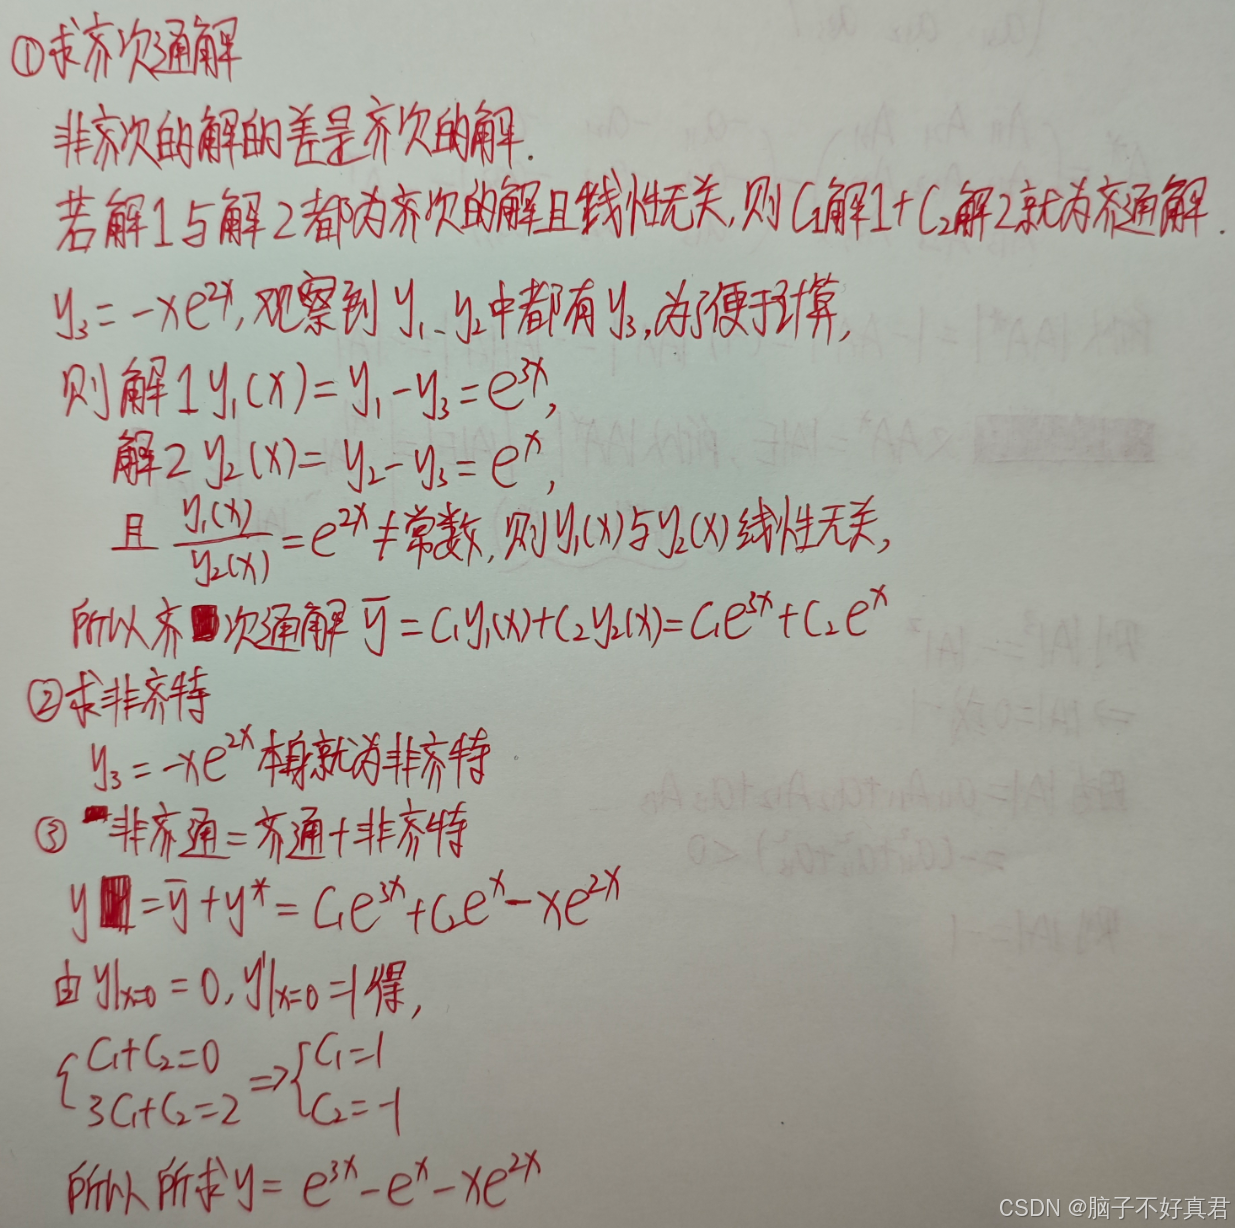 ①求齐次通解
非齐次的解的差是齐次的解.
若解1与解2都为齐次的解且线性无关,则C₁解1+C₂解2就为齐通解.
y₃=-xe^{2x},观察到y₁、y₂中都有y₃,为了便于计算,
则解1 y₁(x)=y₁-y₃=e^{3x},
解2 y₂(x)=y₂-y₃=e^{x},
且 y₁(x)/y₂(x)=e^{2x}≠常数,则y₁(x)与y₂(x)线性无关,
所以齐次通解 ȳ=C₁y₁(x)+C₂y₂(x)=C₁e^{3x}+C₂e^{x}
②求非齐特
y₃=-xe^{2x}本身就为非齐特
③非齐通=齐通+非齐特
y=ȳ+y*=C₁e^{3x}+C₂e^{x}-xe^{2x}
由y|x=0=0,y'|x=0=1得,
{C₁+C₂=0 ⇒ {C₁=1
3C₁+C₂=2 C₂=-1
所以所求y=e^{3x}-e^{x}-xe^{2x}
CSDN @脑子不好真君